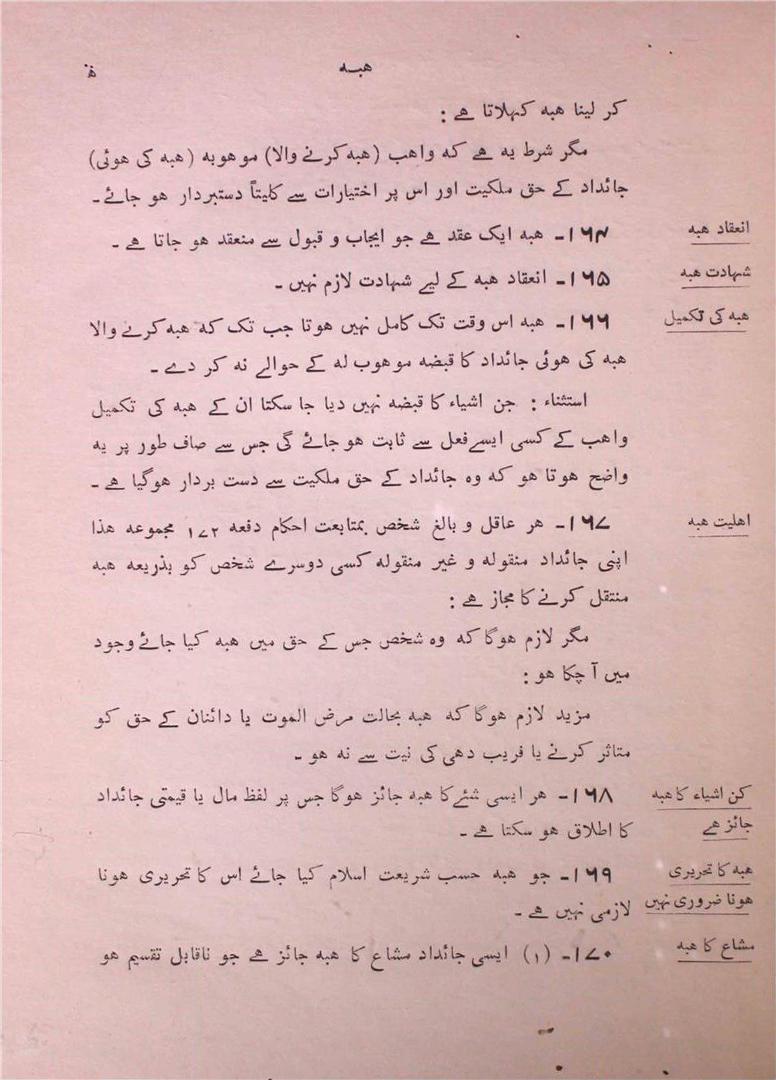 هبہ
ﻓ
کر لینا هبہ کہلاتا ہے :
مگر شرط یہ ہے کہ واهب (هبہ کرنے والا) موهوبہ (هبہ کی هوئی)
جائداد کے حق ملکیت اور اس پر اختیارات سے کلیتاً دستبردار هو جائے ۔
انعقاد هبہ
۱۶۴۔ هبہ ایک عقد ہے جو ایجاب و قبول سے منعقد هو جاتا ہے ۔
شہادت هبہ
۱۶۵۔ انعقاد هبہ کے لیے شہادت لازم نہیں ۔
هبہ کی تکمیل
۱۶۶۔ هبہ اس وقت تک کامل نہیں هوتا جب تک کہ هبہ کرنے والا
هبہ کی هوئی جائداد کا قبضہ موهوب لہ کے حوالے نہ کر دے ۔
استثناء : جن اشیاء کا قبضہ نہیں دیا جا سکتا ان کے هبہ کی تکمیل
واهب کے کسی ایسے فعل سے ثابت هو جائے گی جس سے صاف طور پر یہ
واضح هوتا هو کہ وہ جائداد کے حق ملکیت سے دست بردار هوگیا ہے ۔
اهلیت هبہ
۱۶۷۔ هر عاقل و بالغ شخص بمتابعت احکام دفعہ ۱۷۲ مجموعہ هذا
اپنی جائداد منقولہ و غیر منقولہ کسی دوسرے شخص کو بذریعہ هبہ
منتقل کرنے کا مجاز ہے :
مگر لازم هوگا کہ وہ شخص جس کے حق میں هبہ کیا جائے وجود
میں آ چکا هو :
مزید لازم هوگا کہ هبہ بحالت مرض الموت یا دائنان کے حق کو
متاثر کرنے یا فریب دهی کی نیت سے نہ هو ۔
کن اشیاء کا هبہ
جائز ہے
۱۶۸۔ هر ایسی شئے کا هبہ جائز هوگا جس پر لفظ مال یا قیمتی جائداد
کا اطلاق هو سکتا ہے ۔
هبہ کا تحریری
هونا ضروری نہیں
۱۶۹۔ جو هبہ حسب شریعت اسلام کیا جائے اس کا تحریری هونا
لازمی نہیں ہے ۔
مشاع کا هبہ
۱۷۰۔ (۱) ایسی جائداد مشاع کا هبہ جائز ہے جو ناقابل تقسیم هو